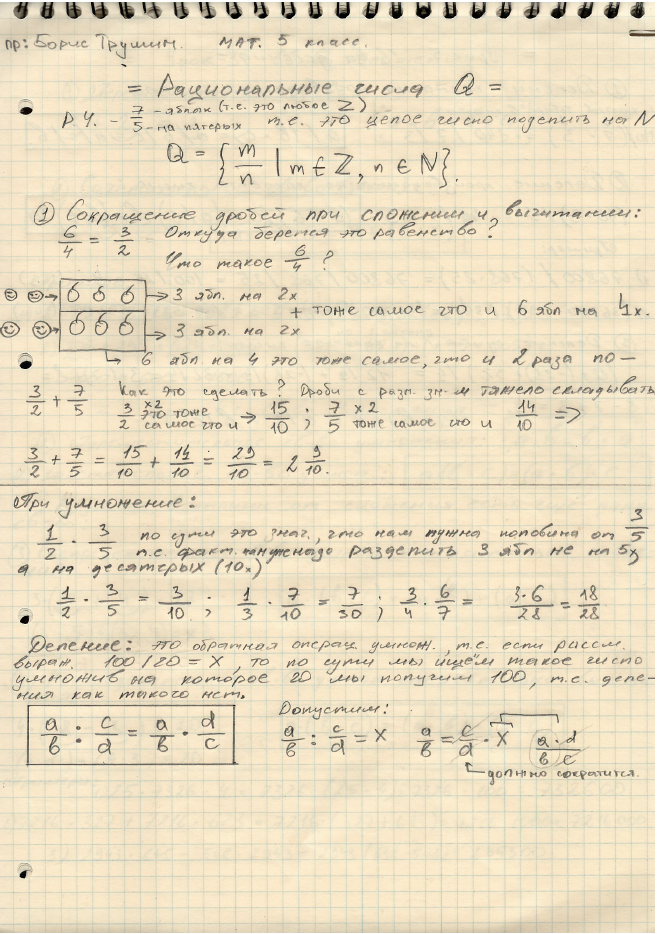 пр: Борис Трушин. мат. 5 класс.
= Рациональные числа Q =
Р Ч. - 7/5 - яблок (т.е. это любое Z) - на пятерых т.е. это целое число поделить на N
Q = { m/n | m ∈ Z, n ∈ N }.
① Сокращение дробей при сложении и вычитании:
6/4 = 3/2 Откуда берется это равенство?
Что такое 6/4 ?
→ 3 ябл. на 2х
+ тоже самое что и 6 ябл на 4х.
→ 3 ябл. на 2х
→ 6 ябл на 4 это тоже самое, что и 2 раза по -
3/2 + 7/5 Как это сделать? Дроби с разн. зн-м тяжело складывать
3/2 ×2 это тоже самое что и → 15/10 ; 7/5 ×2 тоже самое что и 14/10 =>
3/2 + 7/5 = 15/10 + 14/10 = 29/10 = 2 9/10.
При умножение:
1/2 · 3/5 по сути это знач., что нам нужна половина от 3/5
т.е. факт. надо разделить 3 ябл не на 5х,
а на десятерых (10х)
1/2 · 3/5 = 3/10 ; 1/3 · 7/10 = 7/30 ; 3/4 · 6/7 = 3·6/28 = 18/28
Деление: это обратная операц. умнож., т.е. если рассм.
выраж. 100/20 = X, то по сути мы ищём такое число
умножив на которое 20 мы получим 100, т.е. деле-
ния как такого нет.
Допустим:
a/b : c/d = a/b · d/c
a/b : c/d = X a/b = c/d · X a·d/b c
должно сократится.